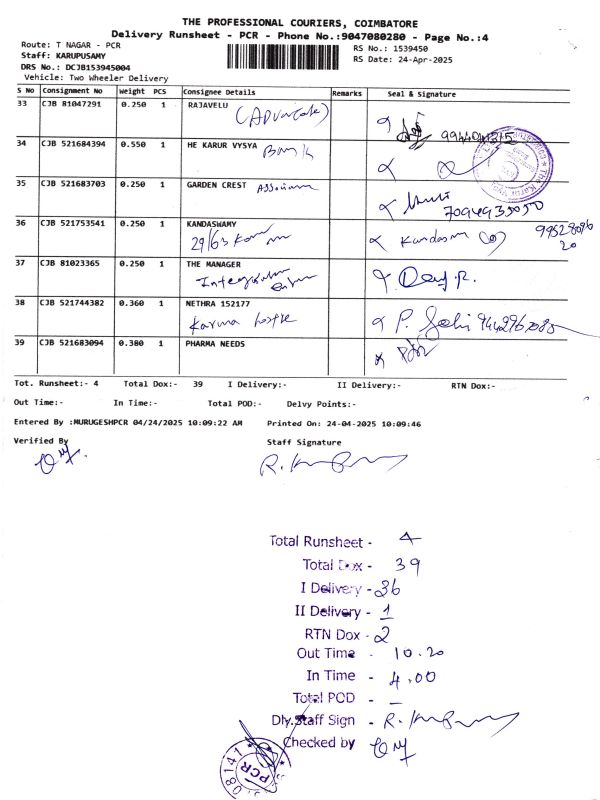 THE PROFESSIONAL COURIERS, COIMBATORE
Delivery Runsheet - PCR - Phone No.:9047080280 - Page No.:4
Route: T NAGAR - PCR
RS No.: 1539450
Staff: KARUPUSAMY
RS Date: 24-Apr-2025
DRS No.: DCJB153945004
Vehicle: Two Wheeler Delivery
S No Consignment No Weight PCS Consignee Details Remarks Seal & Signature
33 CJB 81047291 0.250 1 RAJAVELU
(ADVocate)
34 CJB 521684394 0.550 1 HE KARUR VYSYA
Bank
35 CJB 521683703 0.250 1 GARDEN CREST
7094935050
36 CJB 521753541 0.250 1 KANDASWAMY
29/63
37 CJB 81023365 0.250 1 THE MANAGER
38 CJB 521744382 0.360 1 NETHRA 152177
39 CJB 521683094 0.380 1 PHARMA NEEDS
Tot. Runsheet:- 4 Total Dox:- 39 I Delivery:- II Delivery:- RTN Dox:-
Out Time:- In Time:- Total POD:- Delvy Points:-
Entered By :MURUGESHPCR 04/24/2025 10:09:22 AM Printed On: 24-04-2025 10:09:46
Verified By Staff Signature
Total Runsheet - 4
Total Dox - 39
I Delivery - 36
II Delivery - 1
RTN Dox - 2
Out Time - 10.20
In Time - 4.00
Total POD - –
Dly.Staff Sign -
Checked by
08141
PCR